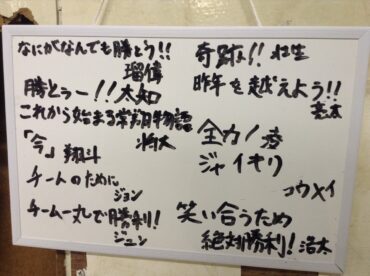 なにがなんでも勝とう!!
瑠偉
勝とぅー!!大知
これから始まる常翔物語
将大
「今」翔斗
チームのために
ジョン
チーム一丸で勝利!
ジュン
奇跡!!壮生
昨年を越えよう!!
基本
全力!
ジャイキリ
コウメイ
笑い合うため
絶対勝利!浩太